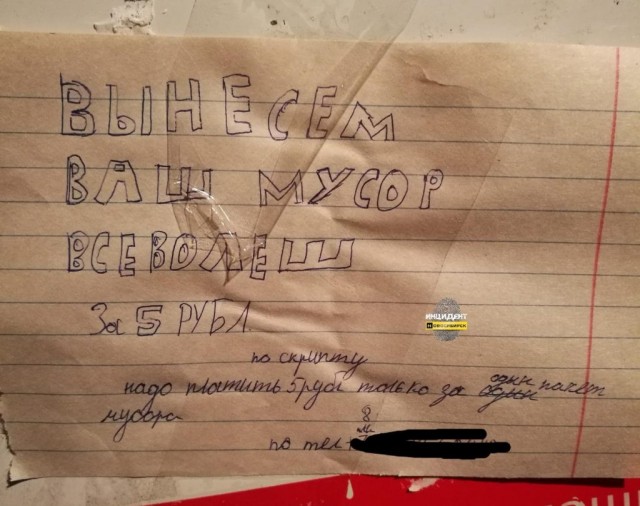 ВЫНЕСЕМ
ВАШ МУСОР
ВСЕВОЛЕШ
За 5 РУБЛ
ИНЦИДЕНТ
НОВОСИБИРСК
по скрипту
надо платить 5 рубл только за один пакет
мусора
8
по тел +